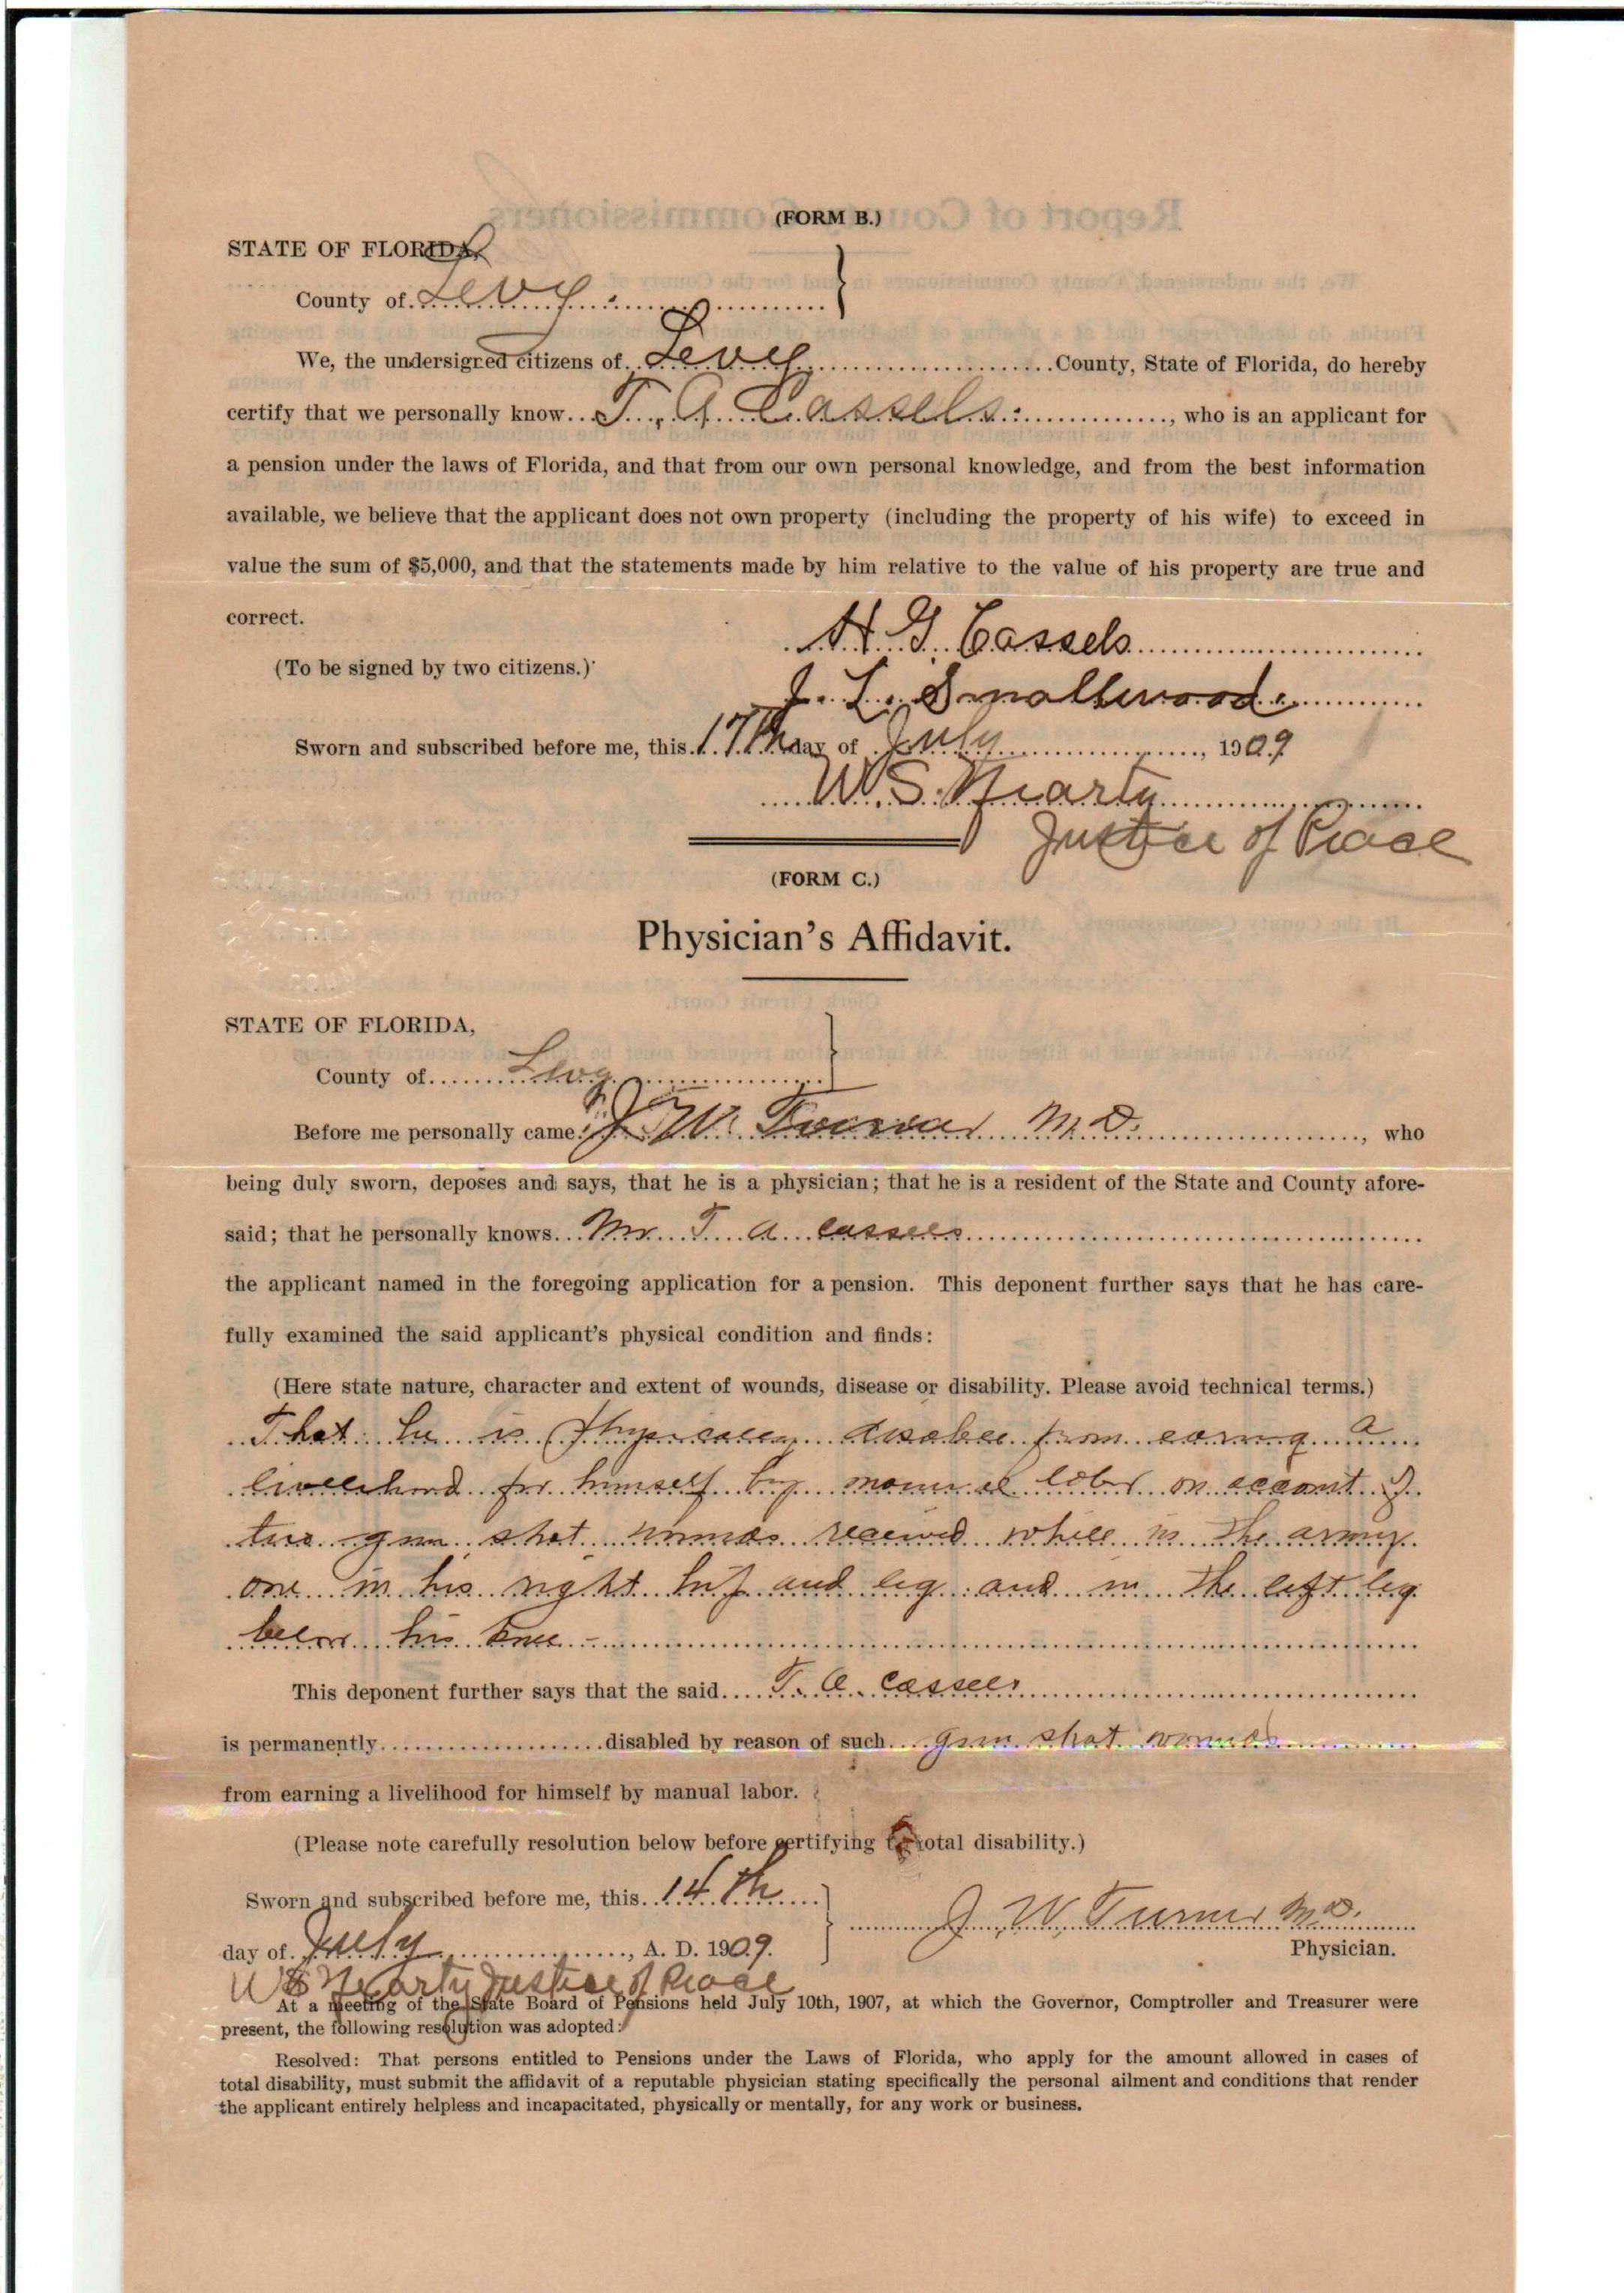 (FORM B.)
STATE OF FLORIDA,
County of Levy
We, the undersigned citizens of Levy County, State of Florida, do hereby
certify that we personally know T. A Cassels, who is an applicant for
a pension under the laws of Florida, and that from our own personal knowledge, and from the best information
available, we believe that the applicant does not own property (including the property of his wife) to exceed in
value the sum of $5,000, and that the statements made by him relative to the value of his property are true and
correct.
H. G. Cassels
(To be signed by two citizens.)
J. L. Smallwood
Sworn and subscribed before me, this 17th day of July, 1909
W. S.
Justice of Peace
(FORM C.)
Physician's Affidavit.
STATE OF FLORIDA,
County of Levy
Before me personally came J. W. Turner M.D., who
being duly sworn, deposes and says, that he is a physician; that he is a resident of the State and County afore-
said; that he personally knows Mr. T. A Cassels
the applicant named in the foregoing application for a pension. This deponent further says that he has care-
fully examined the said applicant's physical condition and finds:
(Here state nature, character and extent of wounds, disease or disability. Please avoid technical terms.)
That he is from a
for himself by on account of
two gun shot wounds received while in the army
one in his right and leg and in the left leg
below his knee
This deponent further says that the said T. A. Cassels
is permanently disabled by reason of such gun shot wounds
from earning a livelihood for himself by manual labor.
(Please note carefully resolution below before certifying to total disability.)
Sworn and subscribed before me, this 14th
J. W. Turner M.D.
day of July, A. D. 1909.
Physician.
W S Justice of Peace
At a meeting of the State Board of Pensions held July 10th, 1907, at which the Governor, Comptroller and Treasurer were
present, the following resolution was adopted:
Resolved: That persons entitled to Pensions under the Laws of Florida, who apply for the amount allowed in cases of
total disability, must submit the affidavit of a reputable physician stating specifically the personal ailment and conditions that render
the applicant entirely helpless and incapacitated, physically or mentally, for any work or business.